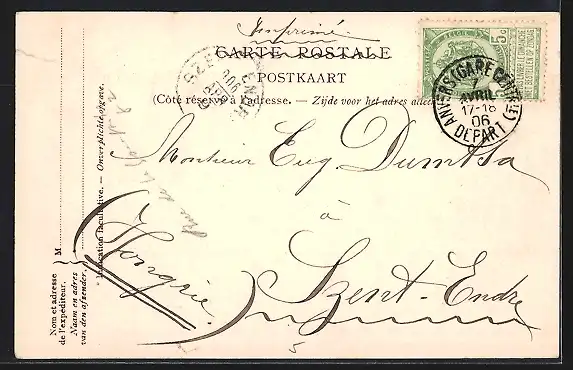 Imprimé
CARTE POSTALE
POSTKAART
(Côté réservé à l'adresse. — Zijde voor het adres
5c
ANVERS (GARE CENTR
AVRIL
17-18
06
DEPART
Monsieur Eug Dumtsa
à
Szent-Endre
(Hongrie)
5
Nom et adresse
de l'expéditeur.
Naam en adres
van den afzender.
M
Indication facultative. — Onverplichte opgave.